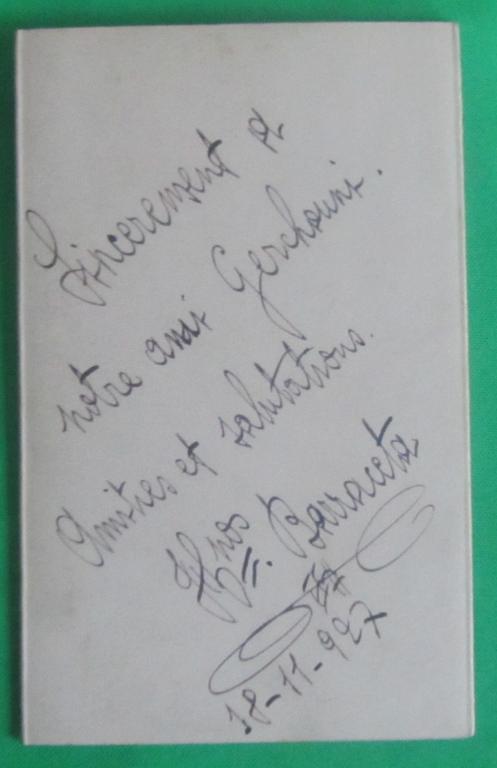 Sincerement a
notre ami Gerchouni.
Amities et salutations.
Hnos. Barraceta
18-11-927